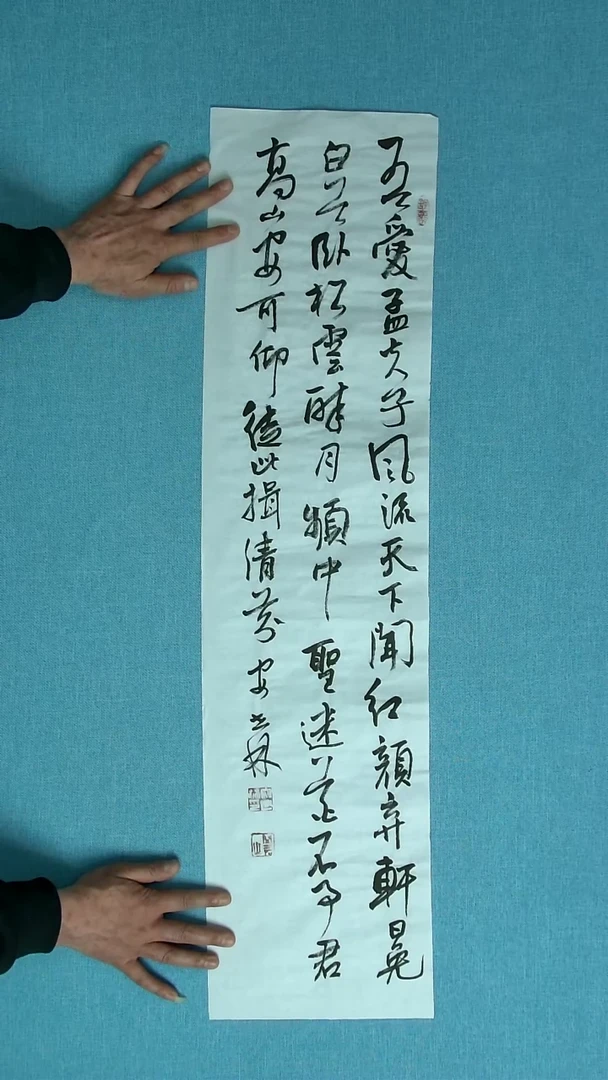 吾愛孟夫子風流天下聞紅顏弃軒冕
白首臥松雲醉月頻中聖迷花不事君
高山安可仰徒此揖清芬 安